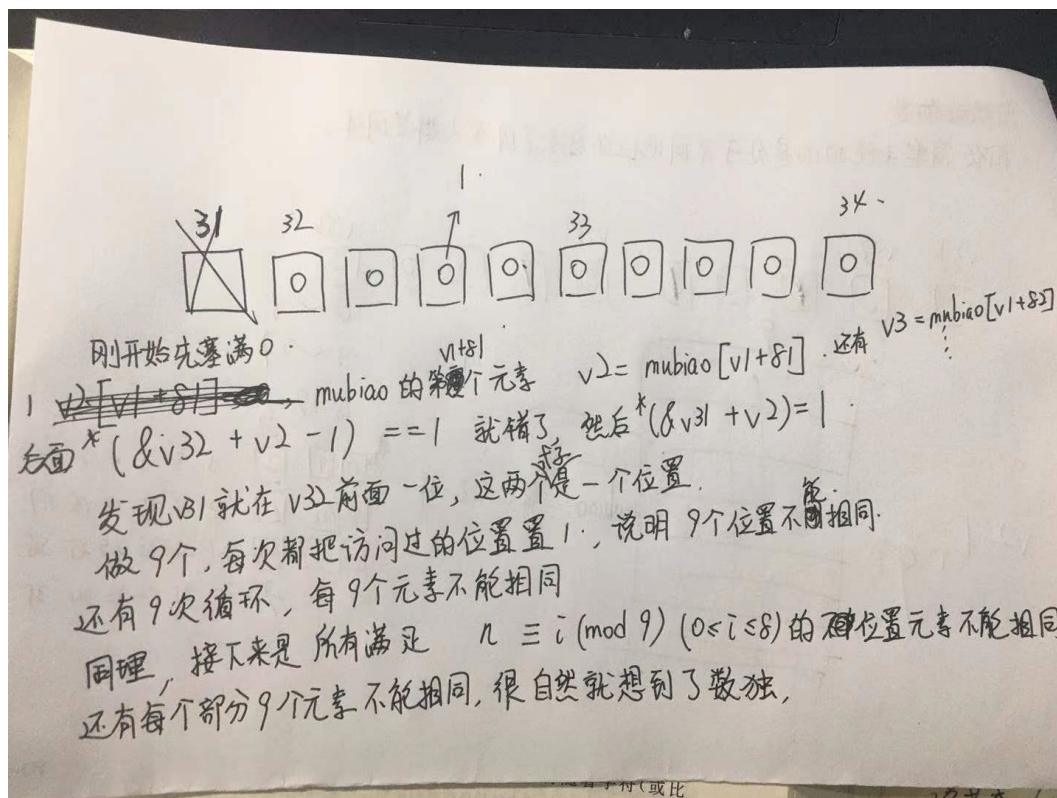 1.
31 32 33 34.
0 0 0 0 0 0 0 0 0
刚开始先塞满0.
1 v2=[v1+81]=0, mubiao的第v1+81个元素 v2= mubiao[v1+81]. 还有 v3=mubiao[v1+82]
后面 *(&v32 + v2 - 1) == 1 就错了, 然后 *(&v31 + v2)=1.
发现v31就在v32前面一位, 这两个式子是一个位置.
做9个, 每次都把访问过的位置置1, 说明9个位置不能相同.
还有9次循环, 每9个元素不能相同
同理, 接下来是所有满足 n ≡ i (mod 9) (0≤i≤8)的位置元素不能相同
还有每个部分9个元素不能相同, 很自然就想到了数独,